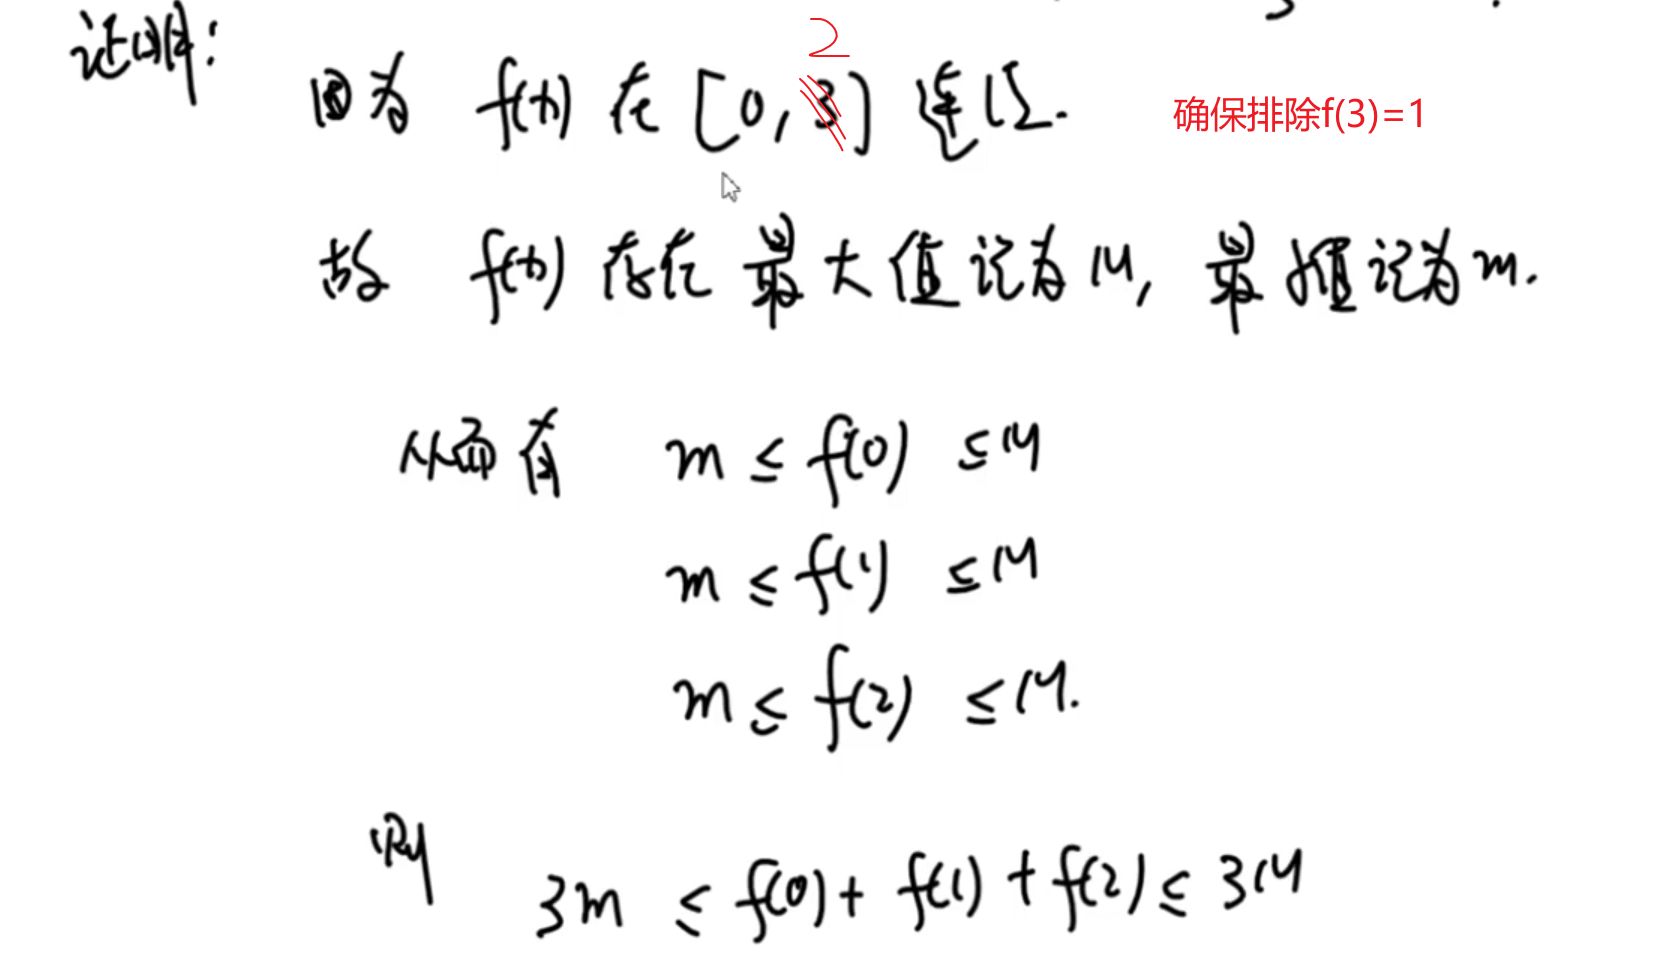 证明:
因为 f(x) 在 [0, 3] 连续. 2 确保排除f(3)=1
故 f(x) 存在最大值记为 M, 最小值记为 m.
从而有 m ≤ f(0) ≤ M
m ≤ f(1) ≤ M
m ≤ f(2) ≤ M.
则
3m ≤ f(0) + f(1) + f(2) ≤ 3M